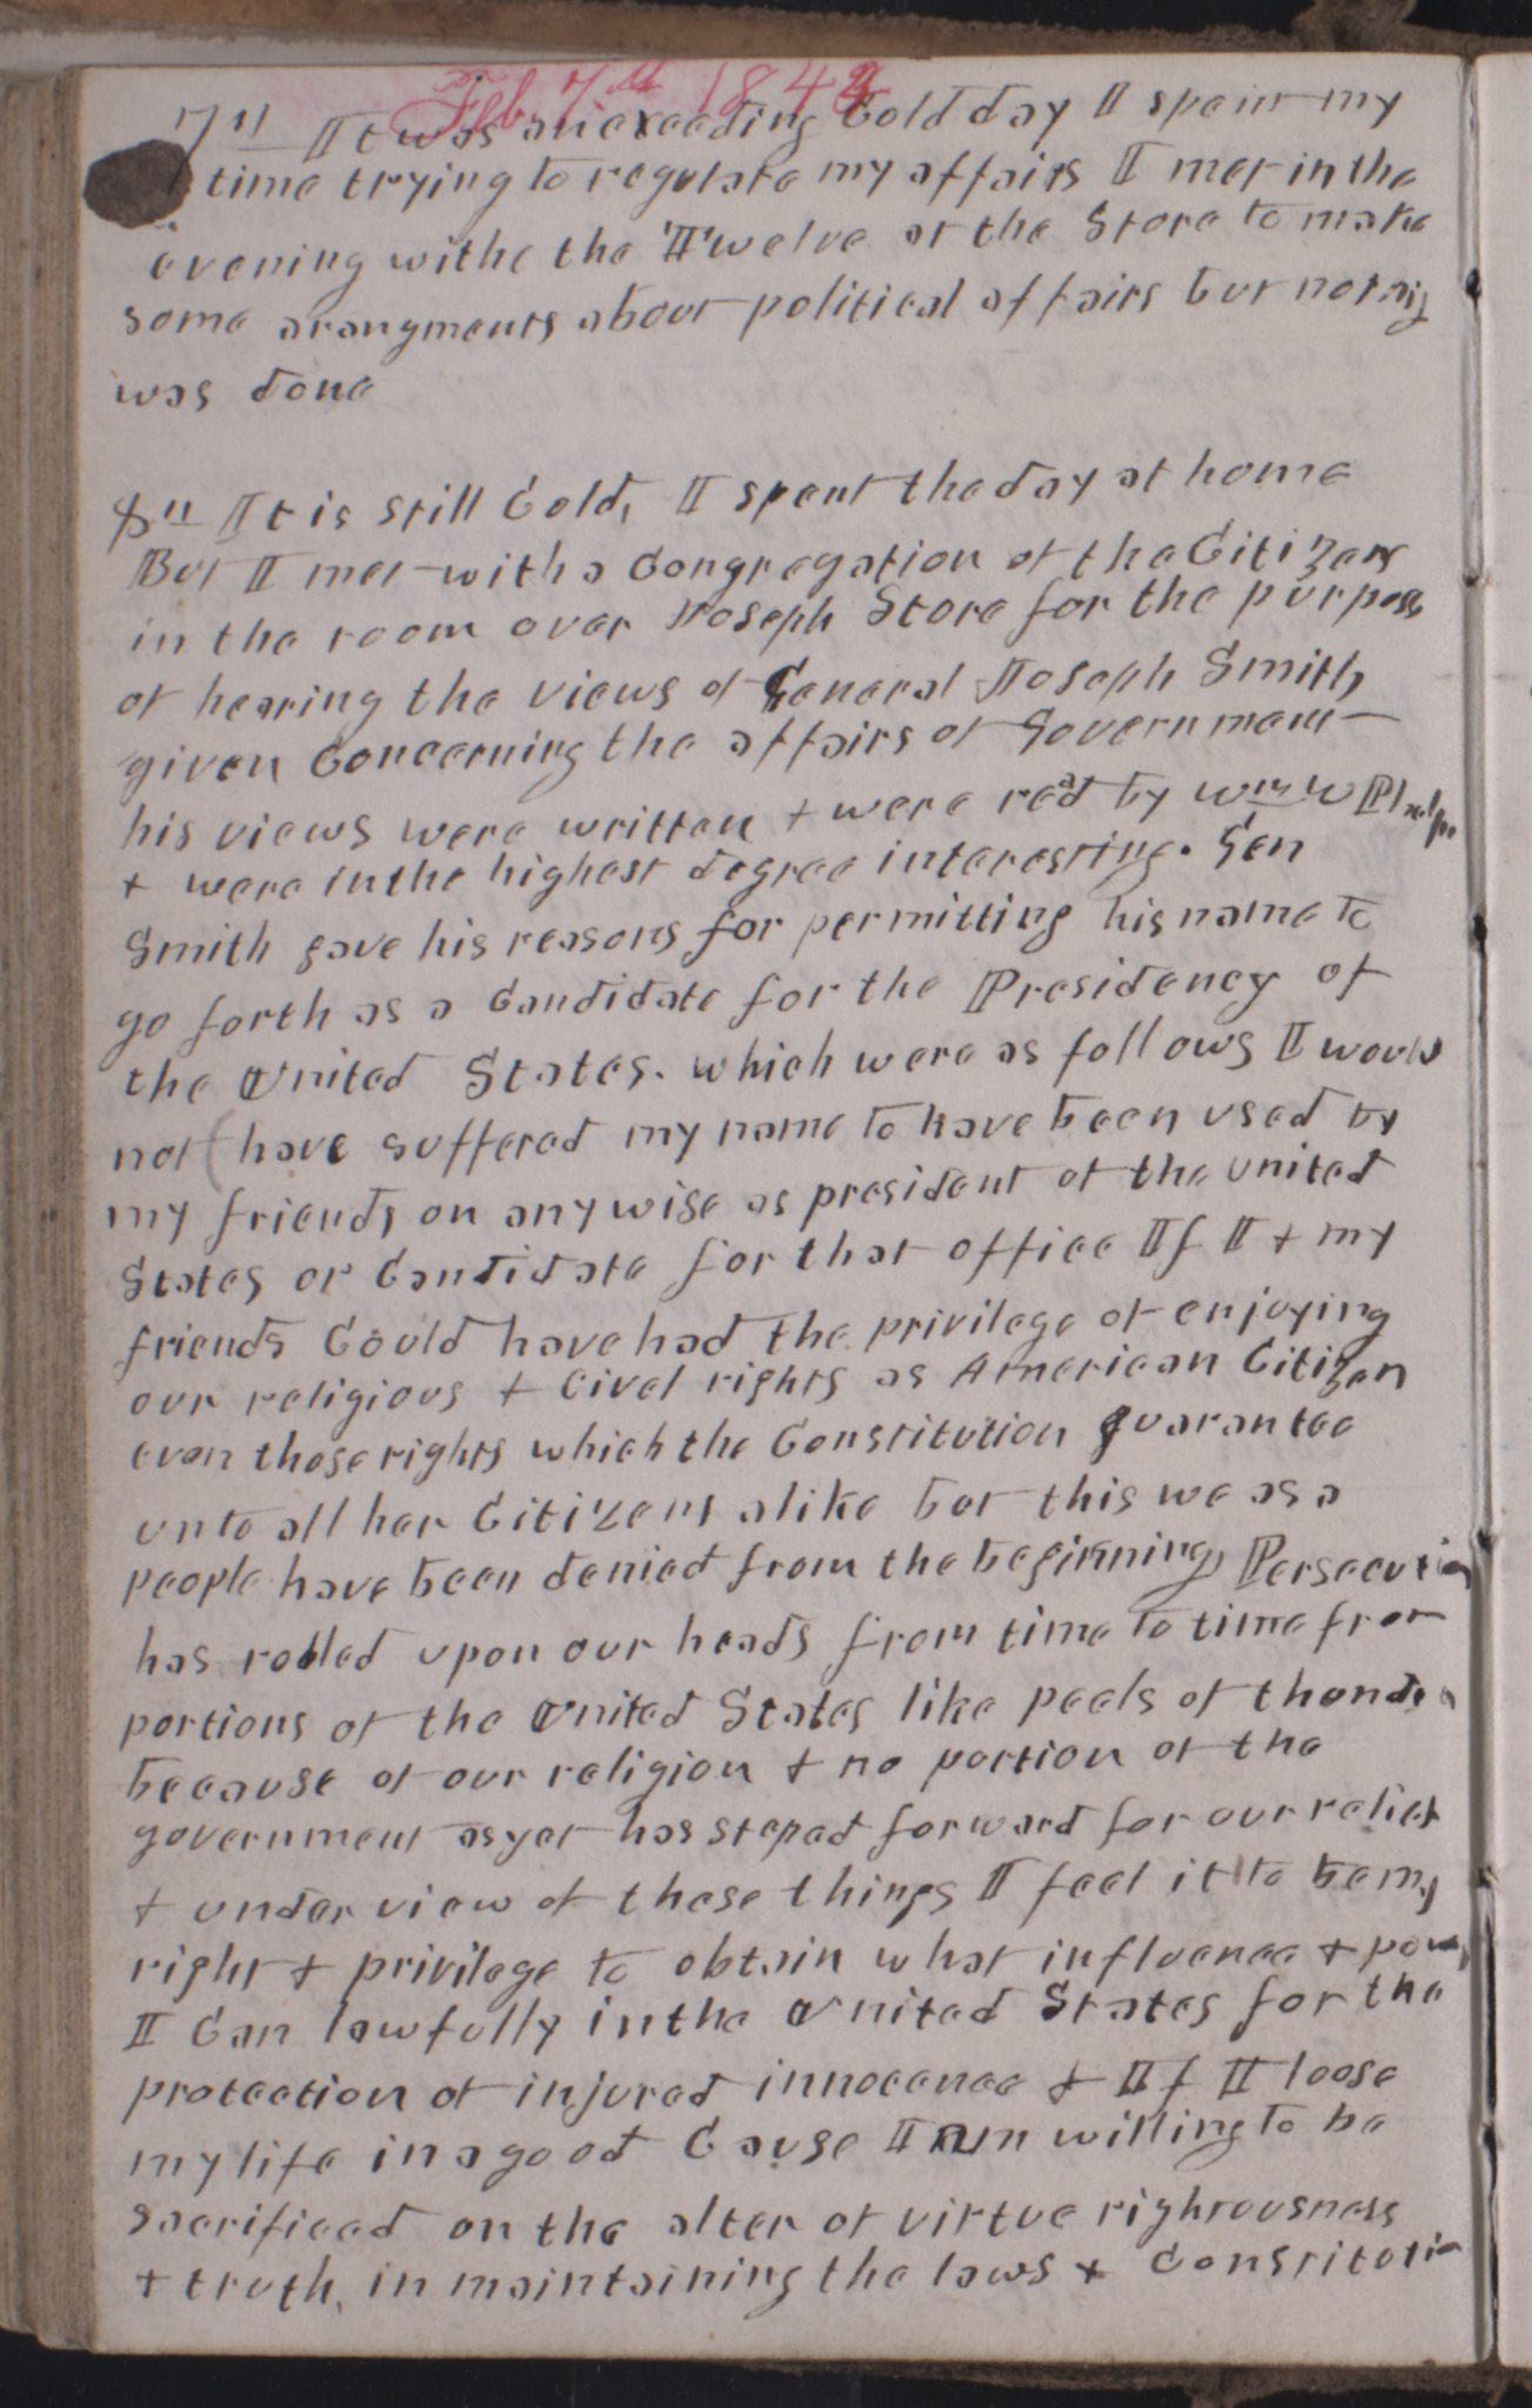 Feb 7th 1844
7th It was an exceeding Cold day I spent my
time trying to regulate my affairs I met in the
evening withe the Twelve at the Store to make
some arangments about political affairs but nothing
was done
8th It is still Cold, I spent the day at home
But I met with a Congregation of the Citizens
in the room over Joseph Store for the purpose
of hearing the views of General Joseph Smith,
given Concerning the affairs of Government
his views were written + were read by Wm W Phelps
+ were in the highest degree interesting. Gen
Smith gave his reasons for permitting his name to
go forth as a Candidate for the Presidency of
the United States. which were as follows I would
not (have suffered my name to have been used by
my friends on any wise as president of the United
States or Candidate for that office If I + my
friends Could have had the privilege of enjoying
our religious + Civel rights as American Citizen
even those rights which the Constitution guarantee
unto all her Citizens alike but this we as a
people have been denied from the beginning, Persecution
has rolled upon our heads from time to time from
portions of the United States like peels of thunder
because of our religion + no portion of the
government as yet has steped forward for our relief
+ under view of these things I feel it to be my
right + privilege to obtain what influence + power
I Can lawfully in the United States for the
protection of injured innocence + If I loose
my life in a good Cause I am willing to be
sacrificed on the alter of virtue rightrousness
+ truth, in maintaining the laws + Constitution